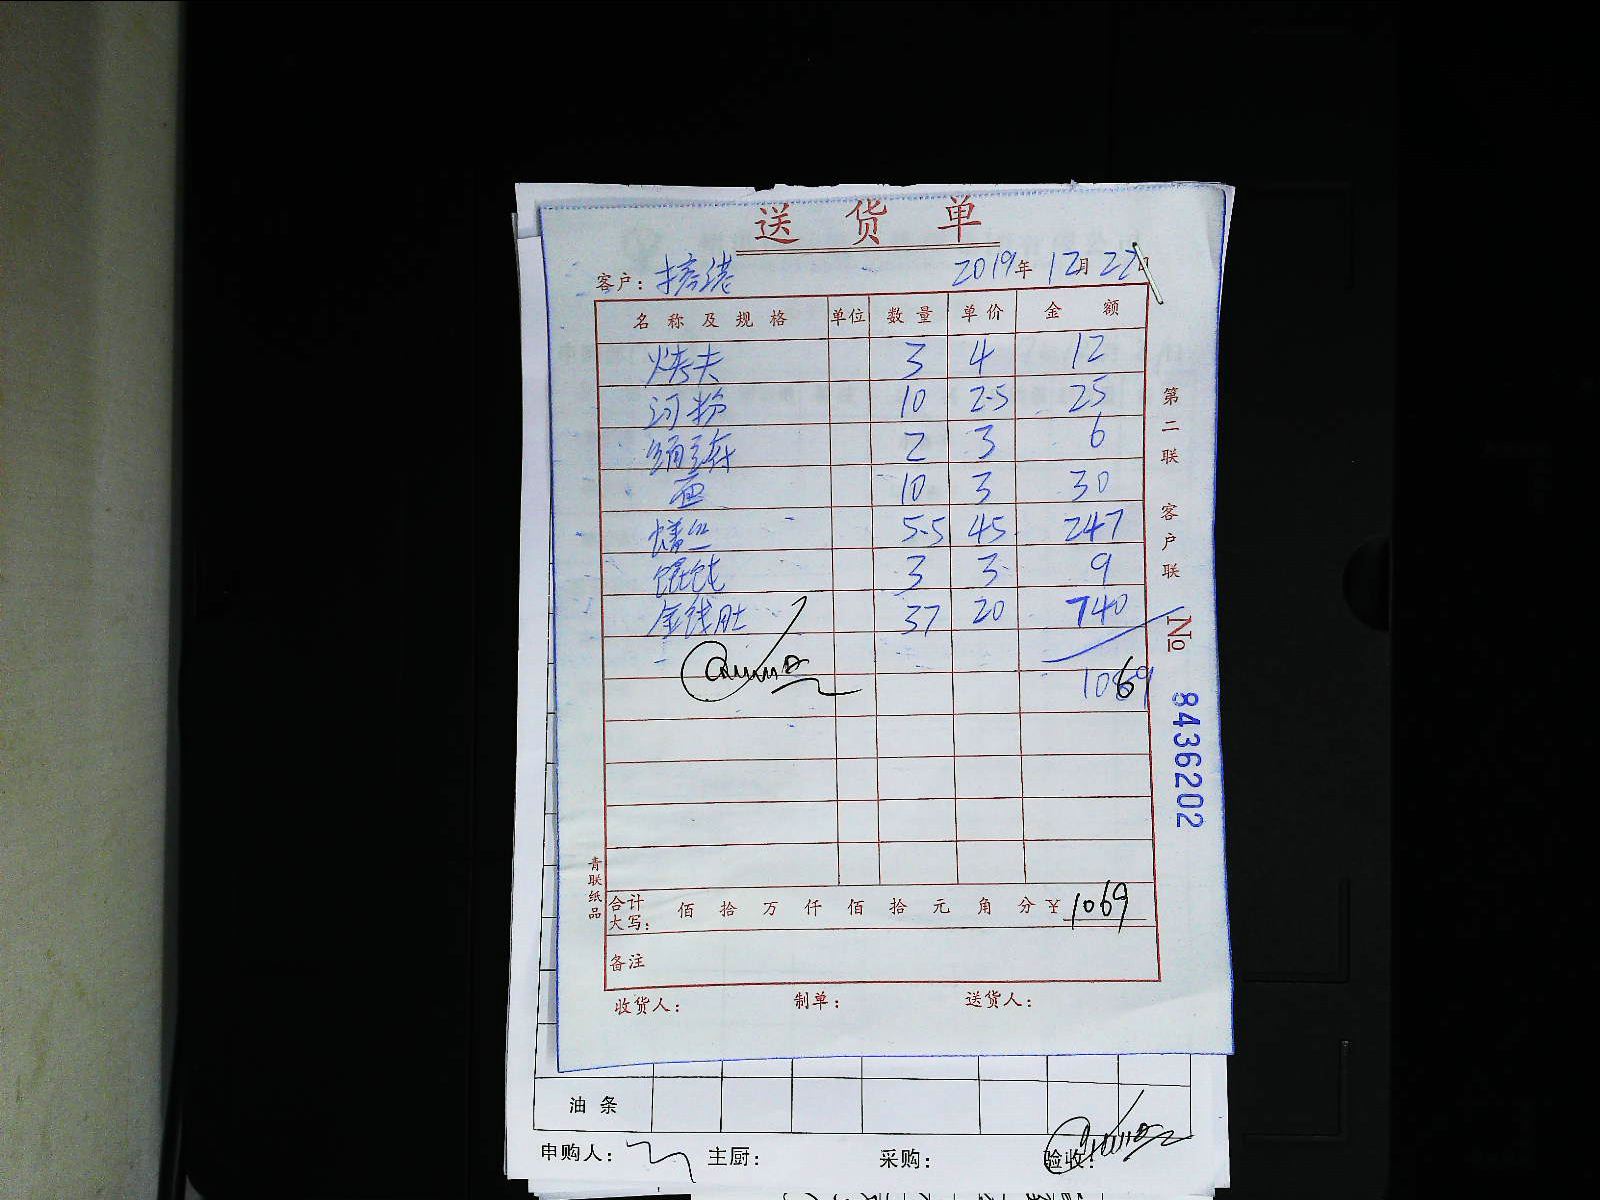 送货单
客户： 2019年12月27日
名称及规格 单位 数量 单价 金额
烤夫 3 4 12
河粉 10 2.5 25
2 3 6
面 10 3 30
鳝丝 5.5 45 247
馄饨 3 3 9
金钱肚 37 20 740
1069
合计大写： 佰 拾 万 仟 佰 拾 元 角 分 ￥1069
备注
收货人： 制单： 送货人：
第二联 客户联
№ 8436202
青联纸品
油条
申购人： 主厨： 采购： 验收：